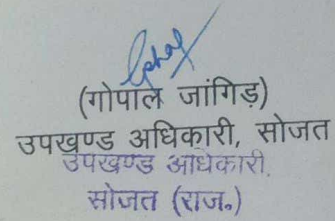 (गोपाल जांगिड़)
उपखण्ड अधिकारी, सोजत
उपखण्ड अधिकारी,
सोजत (राज॰)